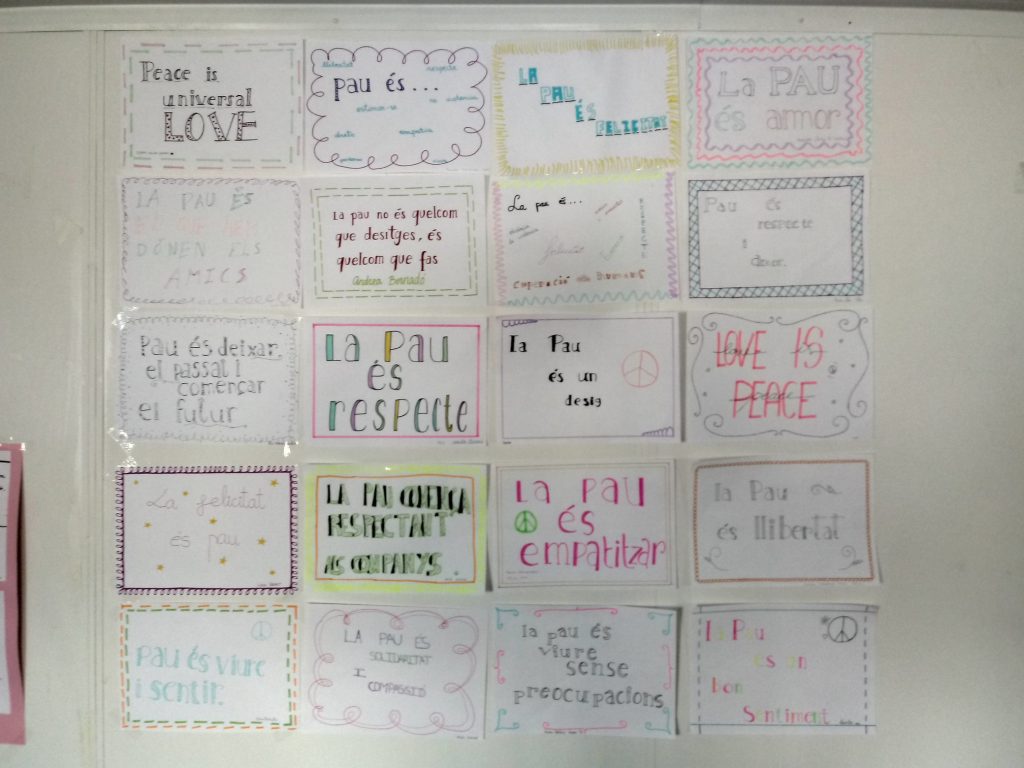 Peace is
universal
LOVE
pau és...
respecte
empatia
LA
PAU
ÉS
FELICITAT
La PAU
és amor
LA PAU ÉS
DÓNEN ELS
AMICS
La pau no és quelcom
que desitges, és
quelcom que fas
La pau é...
RESPECTE
Pau és
respecte
i
Pau és deixar
el passat i
començar
el futur
La Pau
és
respecte
La Pau
és un
desig
LOVE IS
PEACE
La felicitat
és pau
LA PAU COMENÇA
RESPECTANT
ALS COMPANYS.
La pau
és
empatitzar
la Pau
és llibertat
Pau és viure
i sentir.
LA PAU ÉS
SOLIDARITAT
I
COMPASSIÓ
la pau és
viure
sense
preocupacions
La Pau
és un
bon
Sentiment